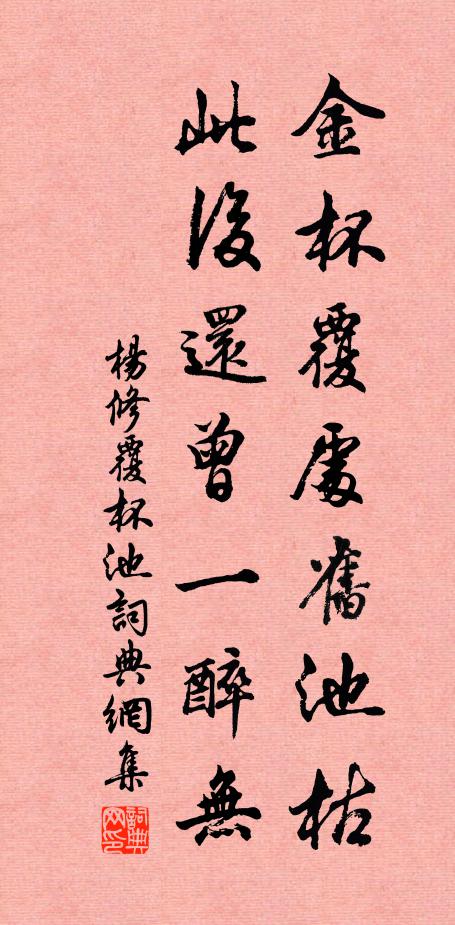 金杯覆處舊池枯
此後還曾一醉無
楊修覆杯池詞典網集
詞典网印